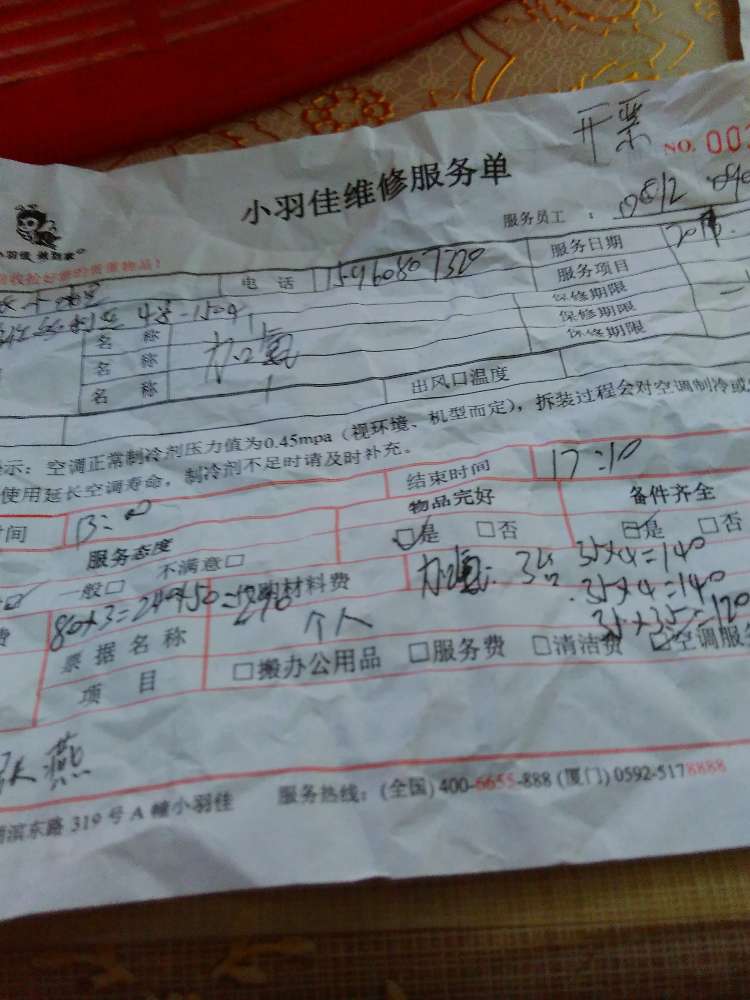 开票
NO. 00
小羽佳维修服务单
小羽佳 做到家
服务员工：
收捡好您的贵重物品！
电 话 15960807320 服务日期
服务项目
4 1504
名 称 加氟 保修期限
名 称 保修期限
名 称 保修期限
出风口温度
示：空调正常制冷剂压力值为0.45mpa（视环境、机型而定），拆装过程会对空调制冷或
使用延长空调寿命，制冷剂不足时请及时补充。
时间 结束时间 17:10
服务态度 物品完好 备件齐全
般□ 不满意□ ☑是 □否 ☑是 □否
80×3=240+50=290 代购材料费 加氟： 35×4=140
35×4=140
费 票据名称 个人 35×35=120
项 目 □搬办公用品 □服务费 □清洁费 ☑空调服
张燕
滨东路 319 号 A 幢小羽佳 服务热线：(全国) 400-6655-888 (厦门) 0592-5178888